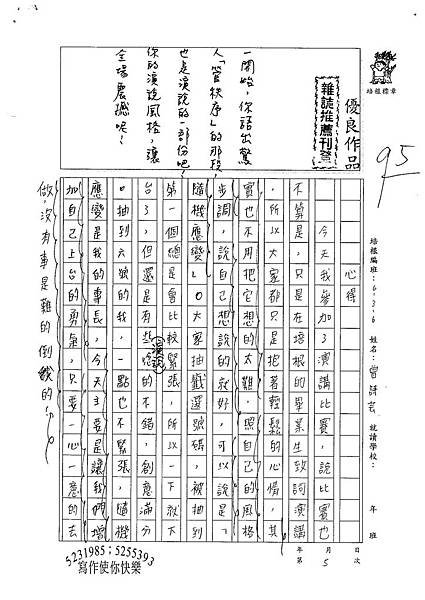 培根標章
優良作品
雜誌推薦刊登
95
一開始,你語出驚
人「管秩序」的那段,
也是演說的一部份吧!
你的演說風格,讓
全場震撼呢!
培根編班:636 姓名:曾詩芸 就讀學校: 年 班
年 月 日
第 5 次
心得
今天我參加了演講比賽,說比賽也
不算是,只是在培根的畢業生致詞演講
,所以大家都只是抱著輕鬆的心情,其
實也不用把它想的太難,照自己的風格
步調,說自己想說的就好,可以說是「
隨機應變」。大家抽籤選號碼,被抽到
第一個總是會比較緊張,所以一下就下
台了,但還是有些的不錯,創意滿分
演說
。抽到六號的我,一點也不緊張,隨機
應變是我的專長,今天主要是讓我們增
加自己上台的勇氣,只要一心一意的去
做,沒有事是難的倒我的!
5231985;5255393
寫作使你快樂